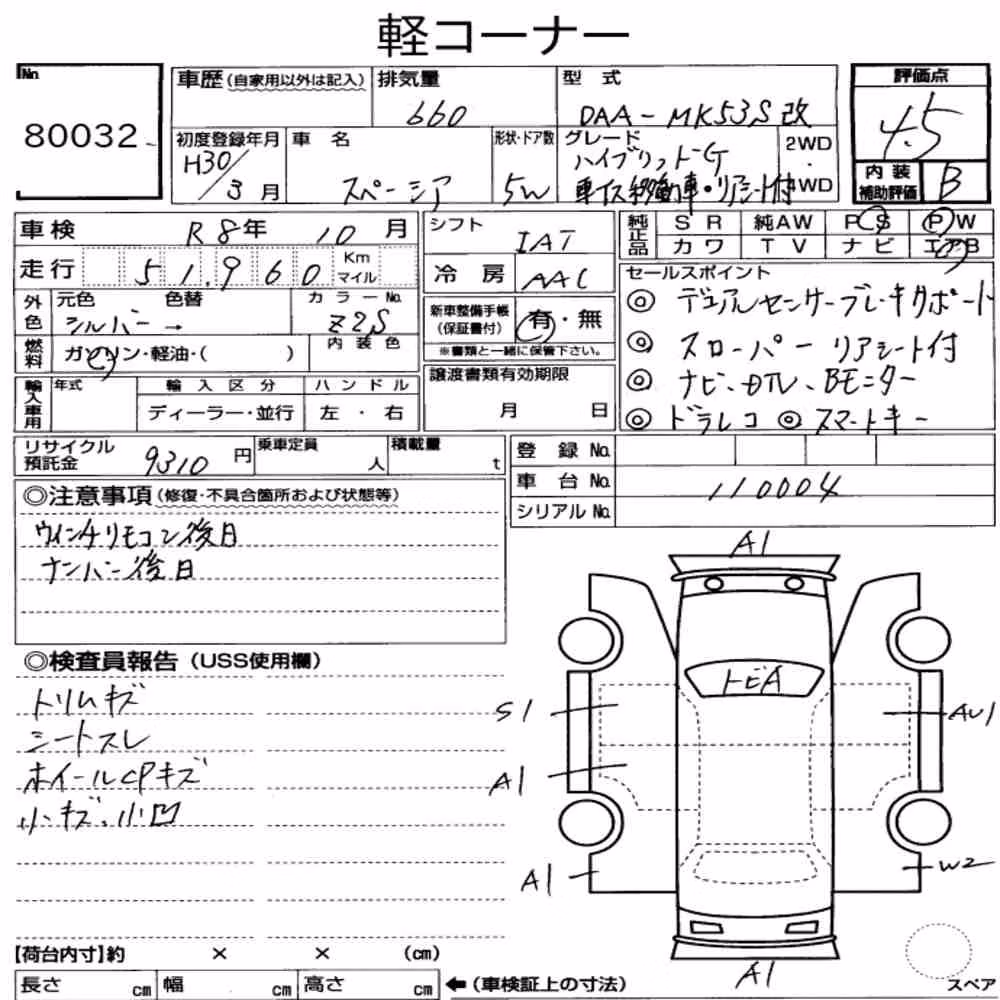 軽コーナー
No.
80032
車歴 (自家用以外は記入)
排気量
660
型式
DAA-MK53S改
評価点
4.5
初度登録年月
H30/3月
車名
スペーシア
形状・ドア数
5W
グレード
ハイブリットG
車イス移動車・リアシート付
2WD
・
4WD
内装
補助評価
B
車検
R8年 10月
シフト
IAT
純正品
SR 純AW PS PW
カワ TV ナビ エアB
走行
51,960
Km
マイル
冷房
AAC
セールスポイント
◎ デュアルセンサーブレーキサポート
◎ スローパー リアシート付
◎ ナビ、DTV、Bモニター
◎ ドラレコ ◎ スマートキー
外色
元色 色替
シルバー→
カラーNo.
Z2S
新車整備手帳
(保証書付)
有・無
※書類と一緒に保管下さい。
燃料
ガソリン・軽油・( )
内装色
輸入車用
年式
輸入区分
ディーラー・並行
ハンドル
左・右
譲渡書類有効期限
月 日
リサイクル
預託金
9310円
乗車定員
人
積載量
t
登録No.
車台No.
110004
シリアルNo.
◎注意事項(修復・不具合箇所および状態等)
ウインチリモコン後日
ナンバー後日
◎検査員報告(USS使用欄)
トリムキズ
シートスレ
ホイールCPキズ
小キズ、小凹
A1
トビA
S1
AU1
A1
A1
W2
A1
【荷台内寸】約 × × (cm)
長さ cm 幅 cm 高さ cm
←(車検証上の寸法)
スペア